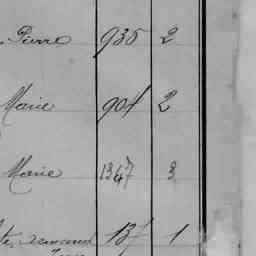 Pierre 936 2
Marie 904 2
Marie 1347 3
137 1